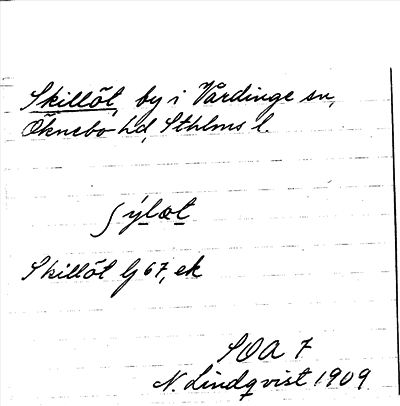 Skillöt, by i Vårdinge sn,
Öknebo hd, Sthlms l.
ʃýlǝt
Skillöt Gj 67, ek
SOA 7
N. Lindqvist 1909